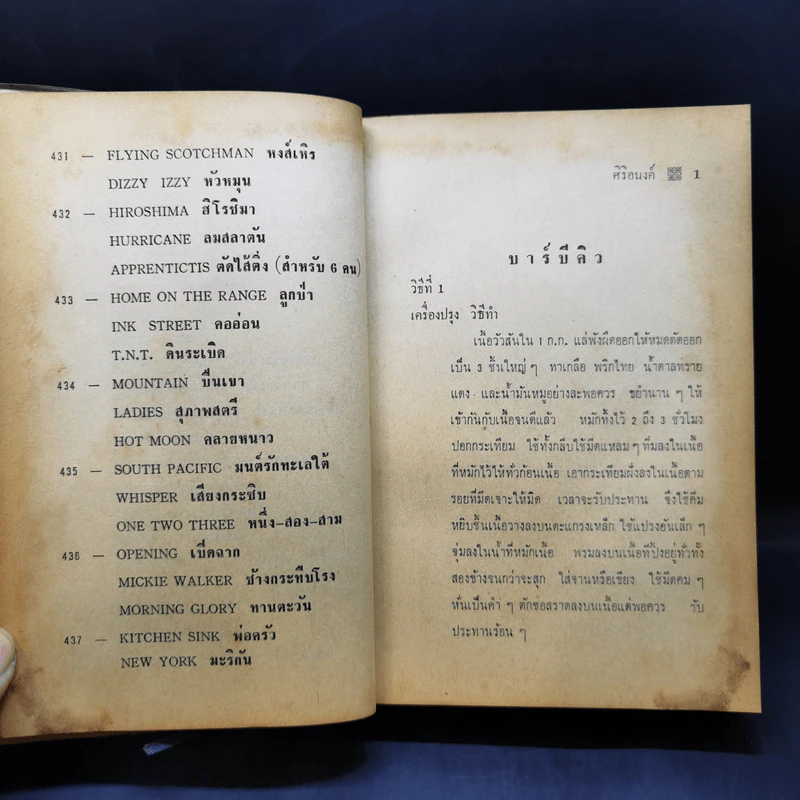 431 — FLYING SCOTCHMAN หงส์เหิร
DIZZY IZZY หัวหมุน
432 — HIROSHIMA ฮิโรชิมา
HURRICANE ลมสลาตัน
APPRENTICTIS ตัดไส้ติ่ง (สำหรับ 6 คน)
433 — HOME ON THE RANGE ลูกป่า
INK STREET คออ่อน
T.N.T. ดินระเบิด
434 — MOUNTAIN ขึ้นเขา
LADIES สุภาพสตรี
HOT MOON คลายหนาว
435 — SOUTH PACIFIC มนต์รักทะเลใต้
WHISPER เสียงกระซิบ
ONE TWO THREE หนึ่ง-สอง-สาม
436 — OPENING เบิดฉาก
MICKIE WALKER ช้างกระทืบโรง
MORNING GLORY ทานตะวัน
437 — KITCHEN SINK พ่อครัว
NEW YORK มะริกัน
ศิริอนงค์ 1
บาร์บีคิว
วิธีที่ 1
เครื่องปรุง วิธีทำ
เนื้อวัวสันใน 1 ก.ก. แล่พังผืดออกให้หมดตัดออก
เป็น 3 ชิ้นใหญ่ ๆ ทาเกลือ พริกไทย น้ำตาลทราย
แดง และน้ำมันหมูอย่างละพอควร ขยำนาน ๆ ให้
เข้ากันกับเนื้อจนดีแล้ว หมักทิ้งไว้ 2 ถึง 3 ชั่วโมง
ปอกกระเทียม ใช้ทั้งกลีบใช้มีดแหลม ๆ ทิ่มลงในเนื้อ
ที่หมักไว้ให้ทั่วก้อนเนื้อ เอากระเทียมฝังลงในเนื้อตาม
รอยที่มีดเจาะให้มิด เวลาจะรับประทาน จึงใช้คีม
หยิบชิ้นเนื้อวางลงบนตะแกรงเหล็ก ใช้แปรงอันเล็ก ๆ
จุ่มลงในน้ำที่หมักเนื้อ พรมลงบนเนื้อที่ปิ้งอยู่ทั่วทั้ง
สองข้างจนกว่าจะสุก ใส่จานหรือเขียง ใช้มีดคม ๆ
หั่นเป็นคำ ๆ ตักซอสราดลงบนเนื้อแต่พอควร รับ
ประทานร้อน ๆ